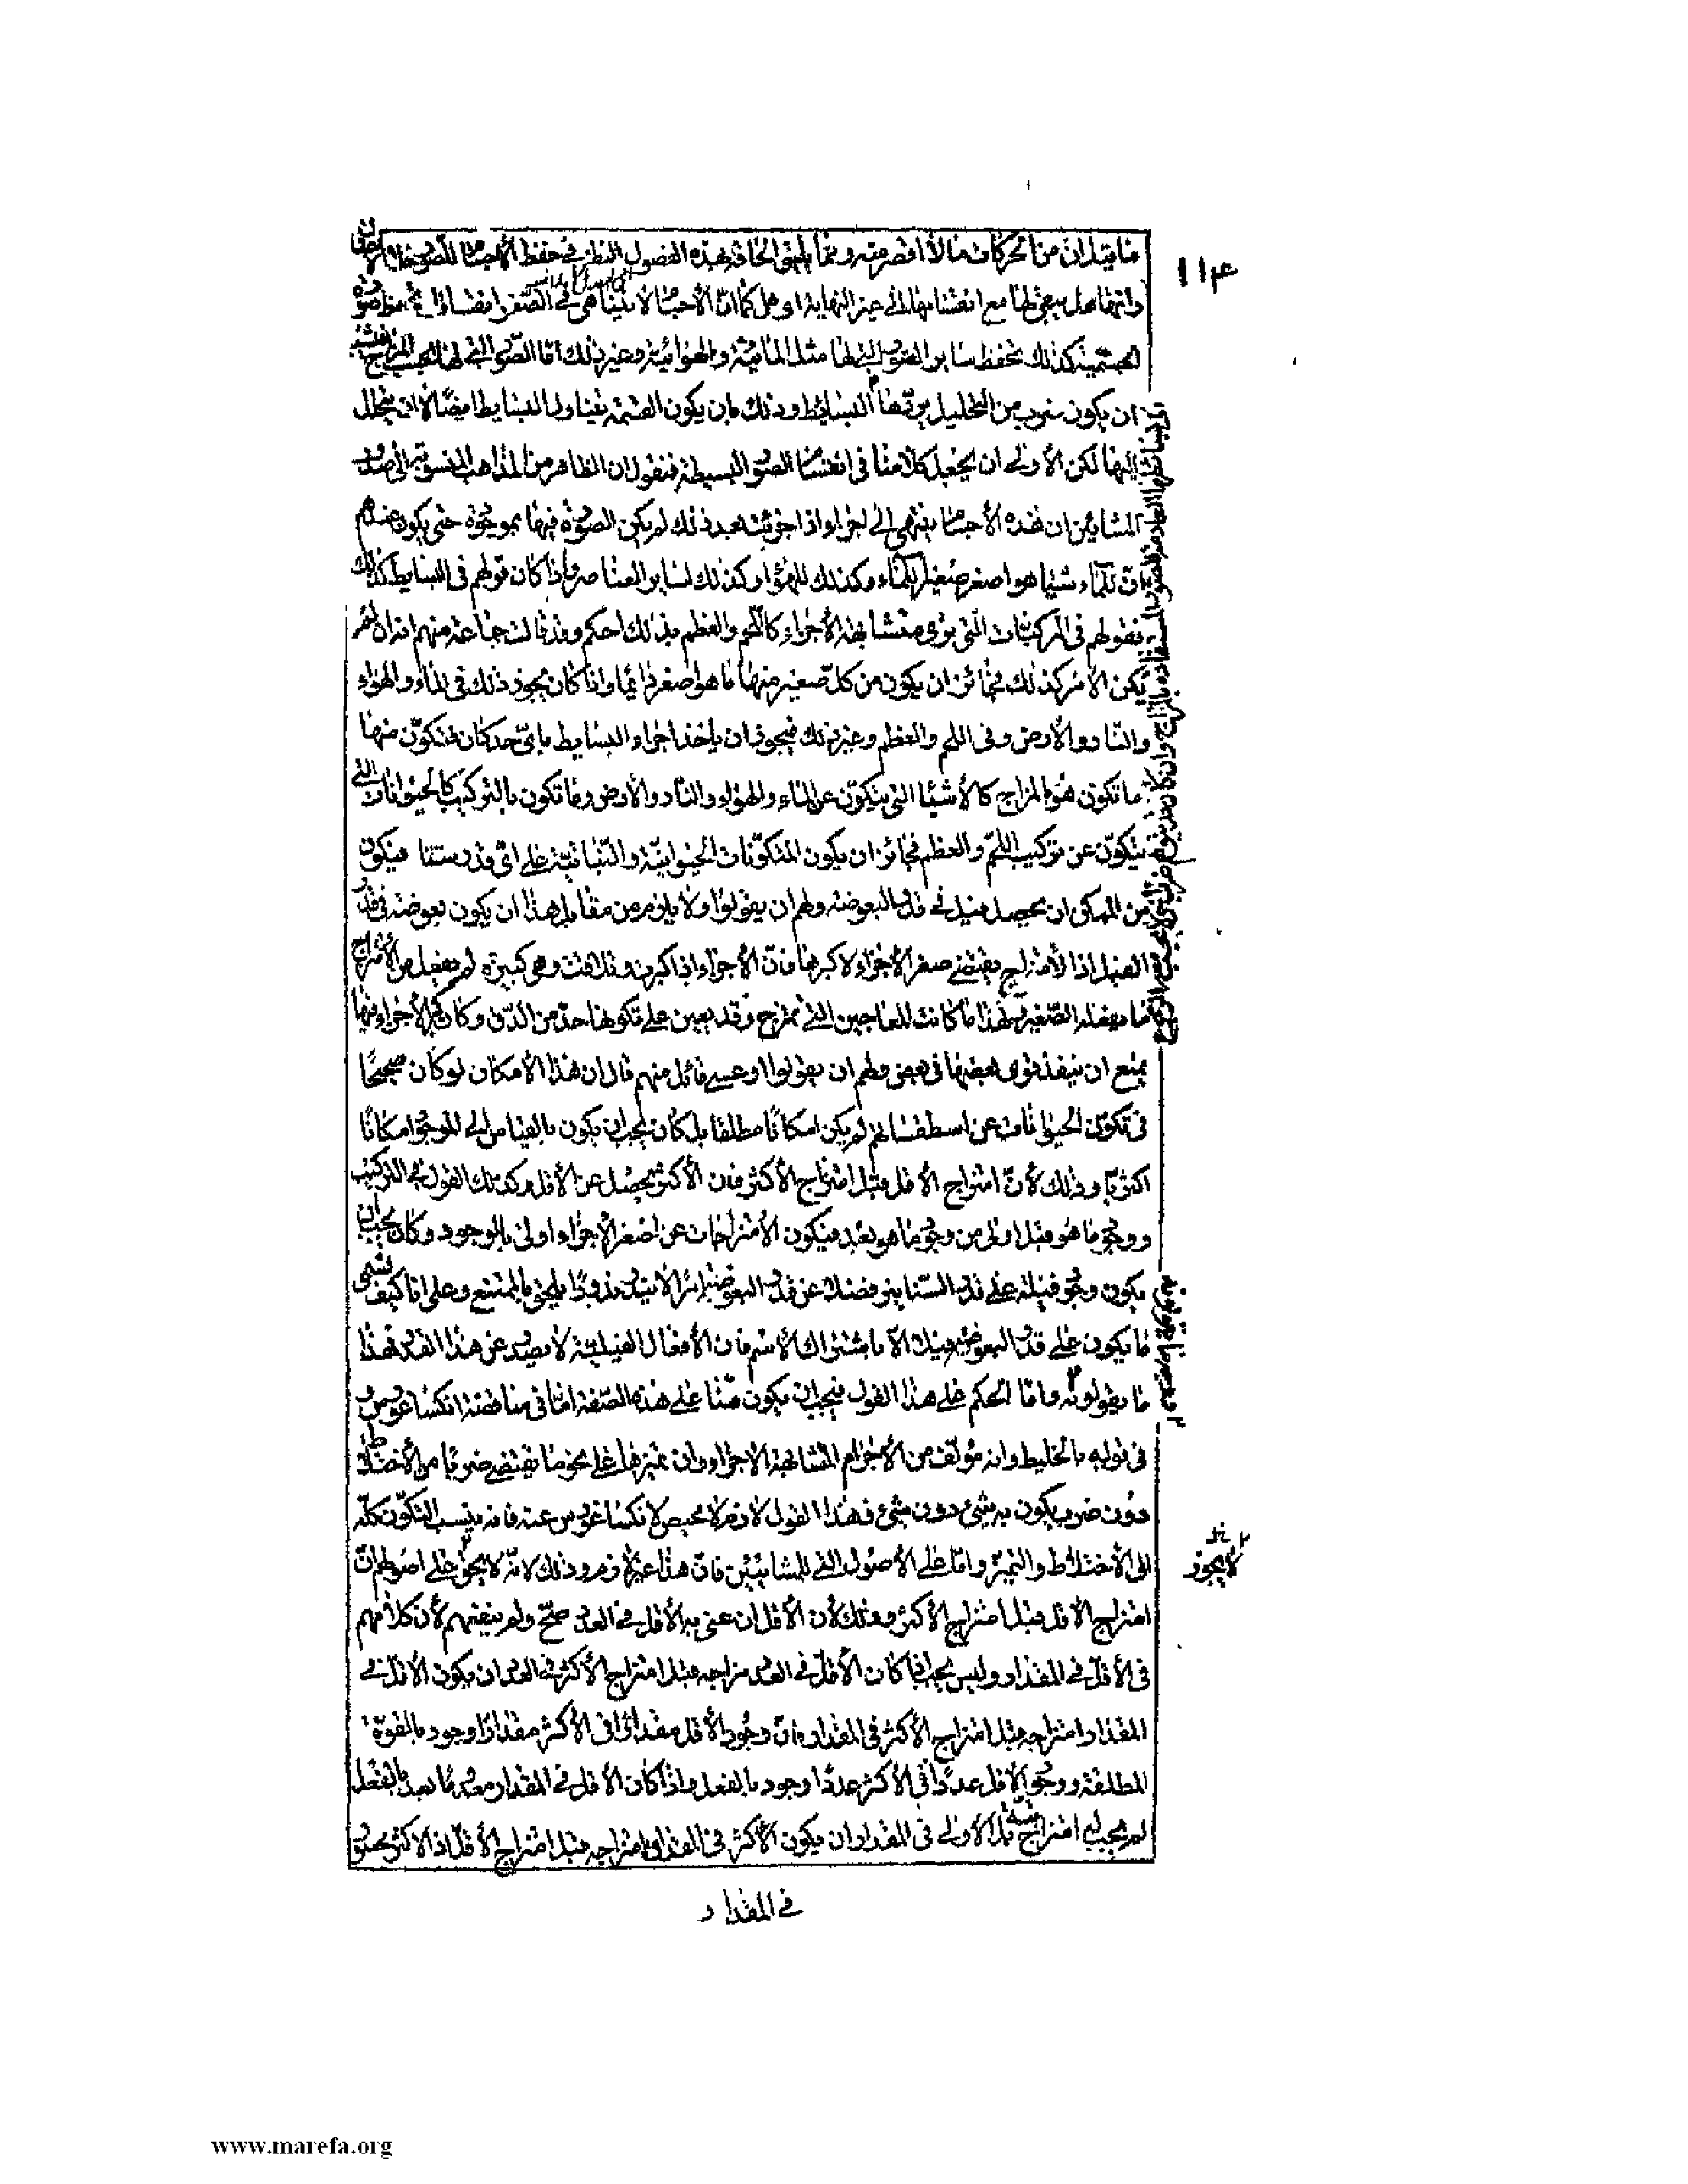 ١١٤
ما يقال ان من الحركات ما لا اقصر منه ومما يليق الحاقه بهذه الفصول النظر في حفظ الأجسام للصور
وانها هل يبقى لها مع انقسامها الى غير النهاية او هل كما ان الأجسام لا يتناهى في الصغر انقساما
الجسمية كذلك تحفظ ساير الصور التي لها مثل المائية والهوائية وغير ذلك اما الصور التي لها بحسب المزاج
ان يكون ضرب من التحليل يردها البسائط وذلك بان يكون القسمة يتناول البسايط ايضا لأن يتحلل
اليها لكن الأولى ان يجعل كلامنا في انقسام الصور البسيطة فنقول ان الظاهر من المذاهب المنسوبة الى صدور
المشائين ان هذه الأجسام ينتهى الى اجزاء اذا جزئت بعد ذلك لم يكن الصورة فيها بموجودة حتى يكون عندهم
ان للماء شيئا هو اصغر صغير للماء وكذلك للهواء وكذلك لساير العناصر واذا كان قولهم في البسايط كذلك
فقولهم في المركبات التي ترى متشابهة الأجزاء كاللحم والعظم بذلك احكم وقد قالت جماعة منهم انه ان لم
يكن الأمر كذلك فجائز ان يكون من كل صغير منها ما هو اصغر دائما واذا كان يجوز ذلك في الماء والهواء
والنار والأرض وفى اللحم والعظم وغير ذلك فيجوز ان ياخذ اجزاء البسايط باي حد كان فتكون منها
ما تكون هو بالمزاج كالأشياء التي يتكون عن الماء والهواء والنار والأرض وما تكون بالتركيب كالحيوانات التي
يتكون عن تركيب اللحم والعظم فجائز ان يكون المتكونات الحيوانية والنباتية على اى قدر سئنا فيكون
من الممكن ان يحصل فيل في قدر البعوضة ولهم ان يقولوا ولا يلزم من مقابل هذا ان يكون بعوضة في قدر
الفيل اذا الأمتزاج يقتضي صغر الأجزاء لا كبرها فان الأجزاء اذا كبرت وتلاقت وهى كبيرة لم يفعل من الأمتزاج
ما يفعله الصغير ولهذا ما كانت المعاجين التي تمزج وقد يعين على تكونها حد من الدق وكان كبر الأجزاء فيها
يمنع ان ينفذ قوى بعضها في بعض ولهم ان يقولوا او عسى قائل منهم قال ان هذا الأمكان لو كان صحيحا
في تكون الحيوانات عن اسطقساتها لم يكن امكانا مطلقا بل كان يجب ان يكون بالقياس الى الموجود امكانا
اكثريا وذلك لأن امتزاج الأقل قبل امتزاج الأكثر فان الأكثر يحصل عن الأقل وكذلك القول في التركيب
ووجود ما هو قبل اولى من وجود ما هو بعد فيكون الأمتزاجات عن اصغر الأجزاء اولى بالوجود وكان يجب ان
يكون وجود فيلة على قدر السنانير فضلا عن قدر البعوضة امرا لا يندر ندورا يلحق بالممتنع وعلى انا كيف نسمى
ما يكون على قدر البعوضة فيلا الا باشتراك الأسم فان الأفعال الفيلية لا يصدر عن هذا القدر فهذا
ما يقولونه واما الحكم على هذا القول فيجب ان يكون منا على هذه الصفة اما في مناقضة انكساغورس
في قوله بالخليط وانه مؤلف من الأجرام المتشابهة الأجزاء وان تميزها على نحو ما يقتضى ضربا من
دون ضرب يكون به شئ دون شئ فهذا القول لازم لا محيص لانكساغورس عنه فانه ينسب التكون كله
الى الأختلاط والتميز واما على الأصول التي للمشائيين فان هذا غير لازم وذلك لانه لا يجوز على اصولهم ان
امتزاج الاقل قبل امتزاج الأكثر وذلك لأن الأقل ان عنى به الأقل في العدد صح ولم ينفعهم لأن كلامهم
فى الأقل في المقدار وليس يجب اذا كان الأقل في العدد مزاجه قبل امتزاج الأكثر في العدد ان يكون الاقل في
المقدار امتزاجه قبل امتزاج الأكثر في المقدار فان وجود الأقل مقدارا في الأكثر مقدارا وجود بالقوة
المطلقة ووجود الاقل عددا في الأكثر عددا وجود بالفعل واذا كان الاقل في المقدار بعد بالفعل
لم يجب امتزاج بل الأولى في المقدار ان يكون الأكثر في المقدار امتزاجه قبل امتزاج الأقل اذ الاكثر
لا يجوز
في المقدار
www.marefa.org